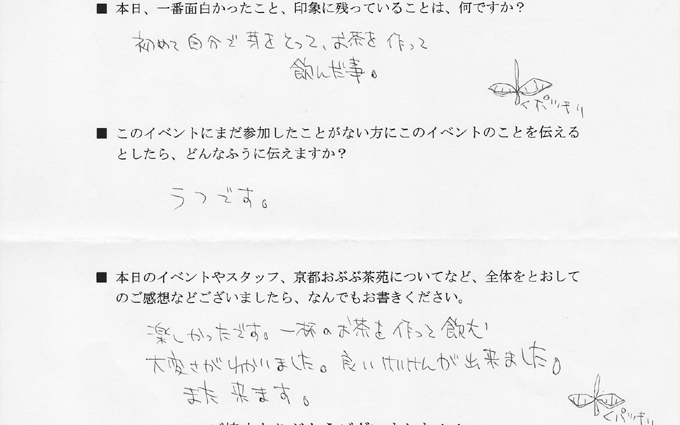 ■ 本日、一番面白かったこと、印象に残っていることは、何ですか？
初めて自分で芽をとって、お茶を作って
飲んだ事。
＜ポッキリ
■ このイベントにまだ参加したことがない方にこのイベントのことを伝える
としたら、どんなふうに伝えますか？
うつです。
■ 本日のイベントやスタッフ、京都おぶぶ茶苑についてなど、全体をとおして
のご感想などございましたら、なんでもお書きください。
楽しかったです。一杯のお茶を作って飲む
大変さがわかりました。良いけいけんが出来ました。
また来ます。